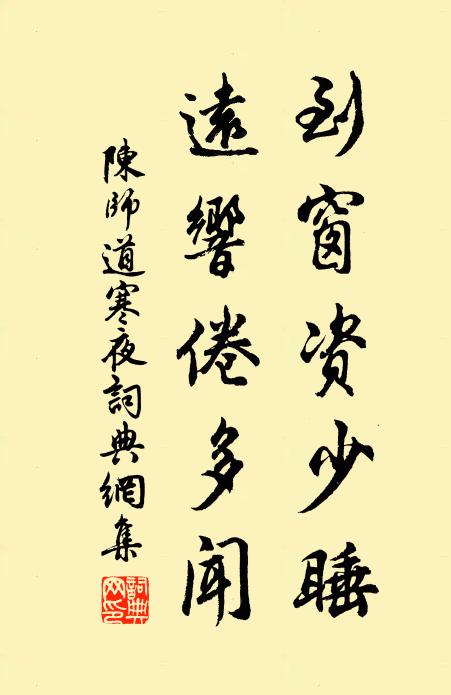 到窗资少睡
遠響倦多聞
陳師道寒夜詞典網集
詞典
网印